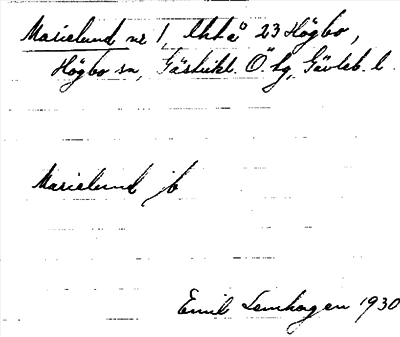 Marielund nr 1, lht å 23 Högbo,
Högbo sn, Gästrikl. Ö. tg, Gävleb. l.
Marielund
Emil Lemhagen 1930